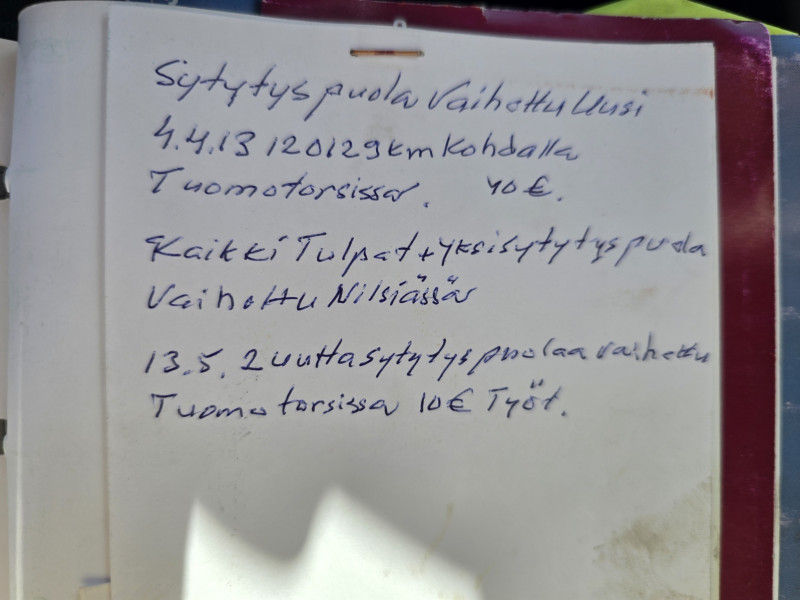 Sytytyspuola Vaihettu Uusi
4.4.13 120129 km Kohdalla
Tuomotorsissa. 40 €.
Kaikki Tulpat + yksi sytytyspuola
Vaihettu Nilsiässä
13.5. 2 uutta sytytyspuolaa vaihettu
Tuomotorsissa 10 € Työt.